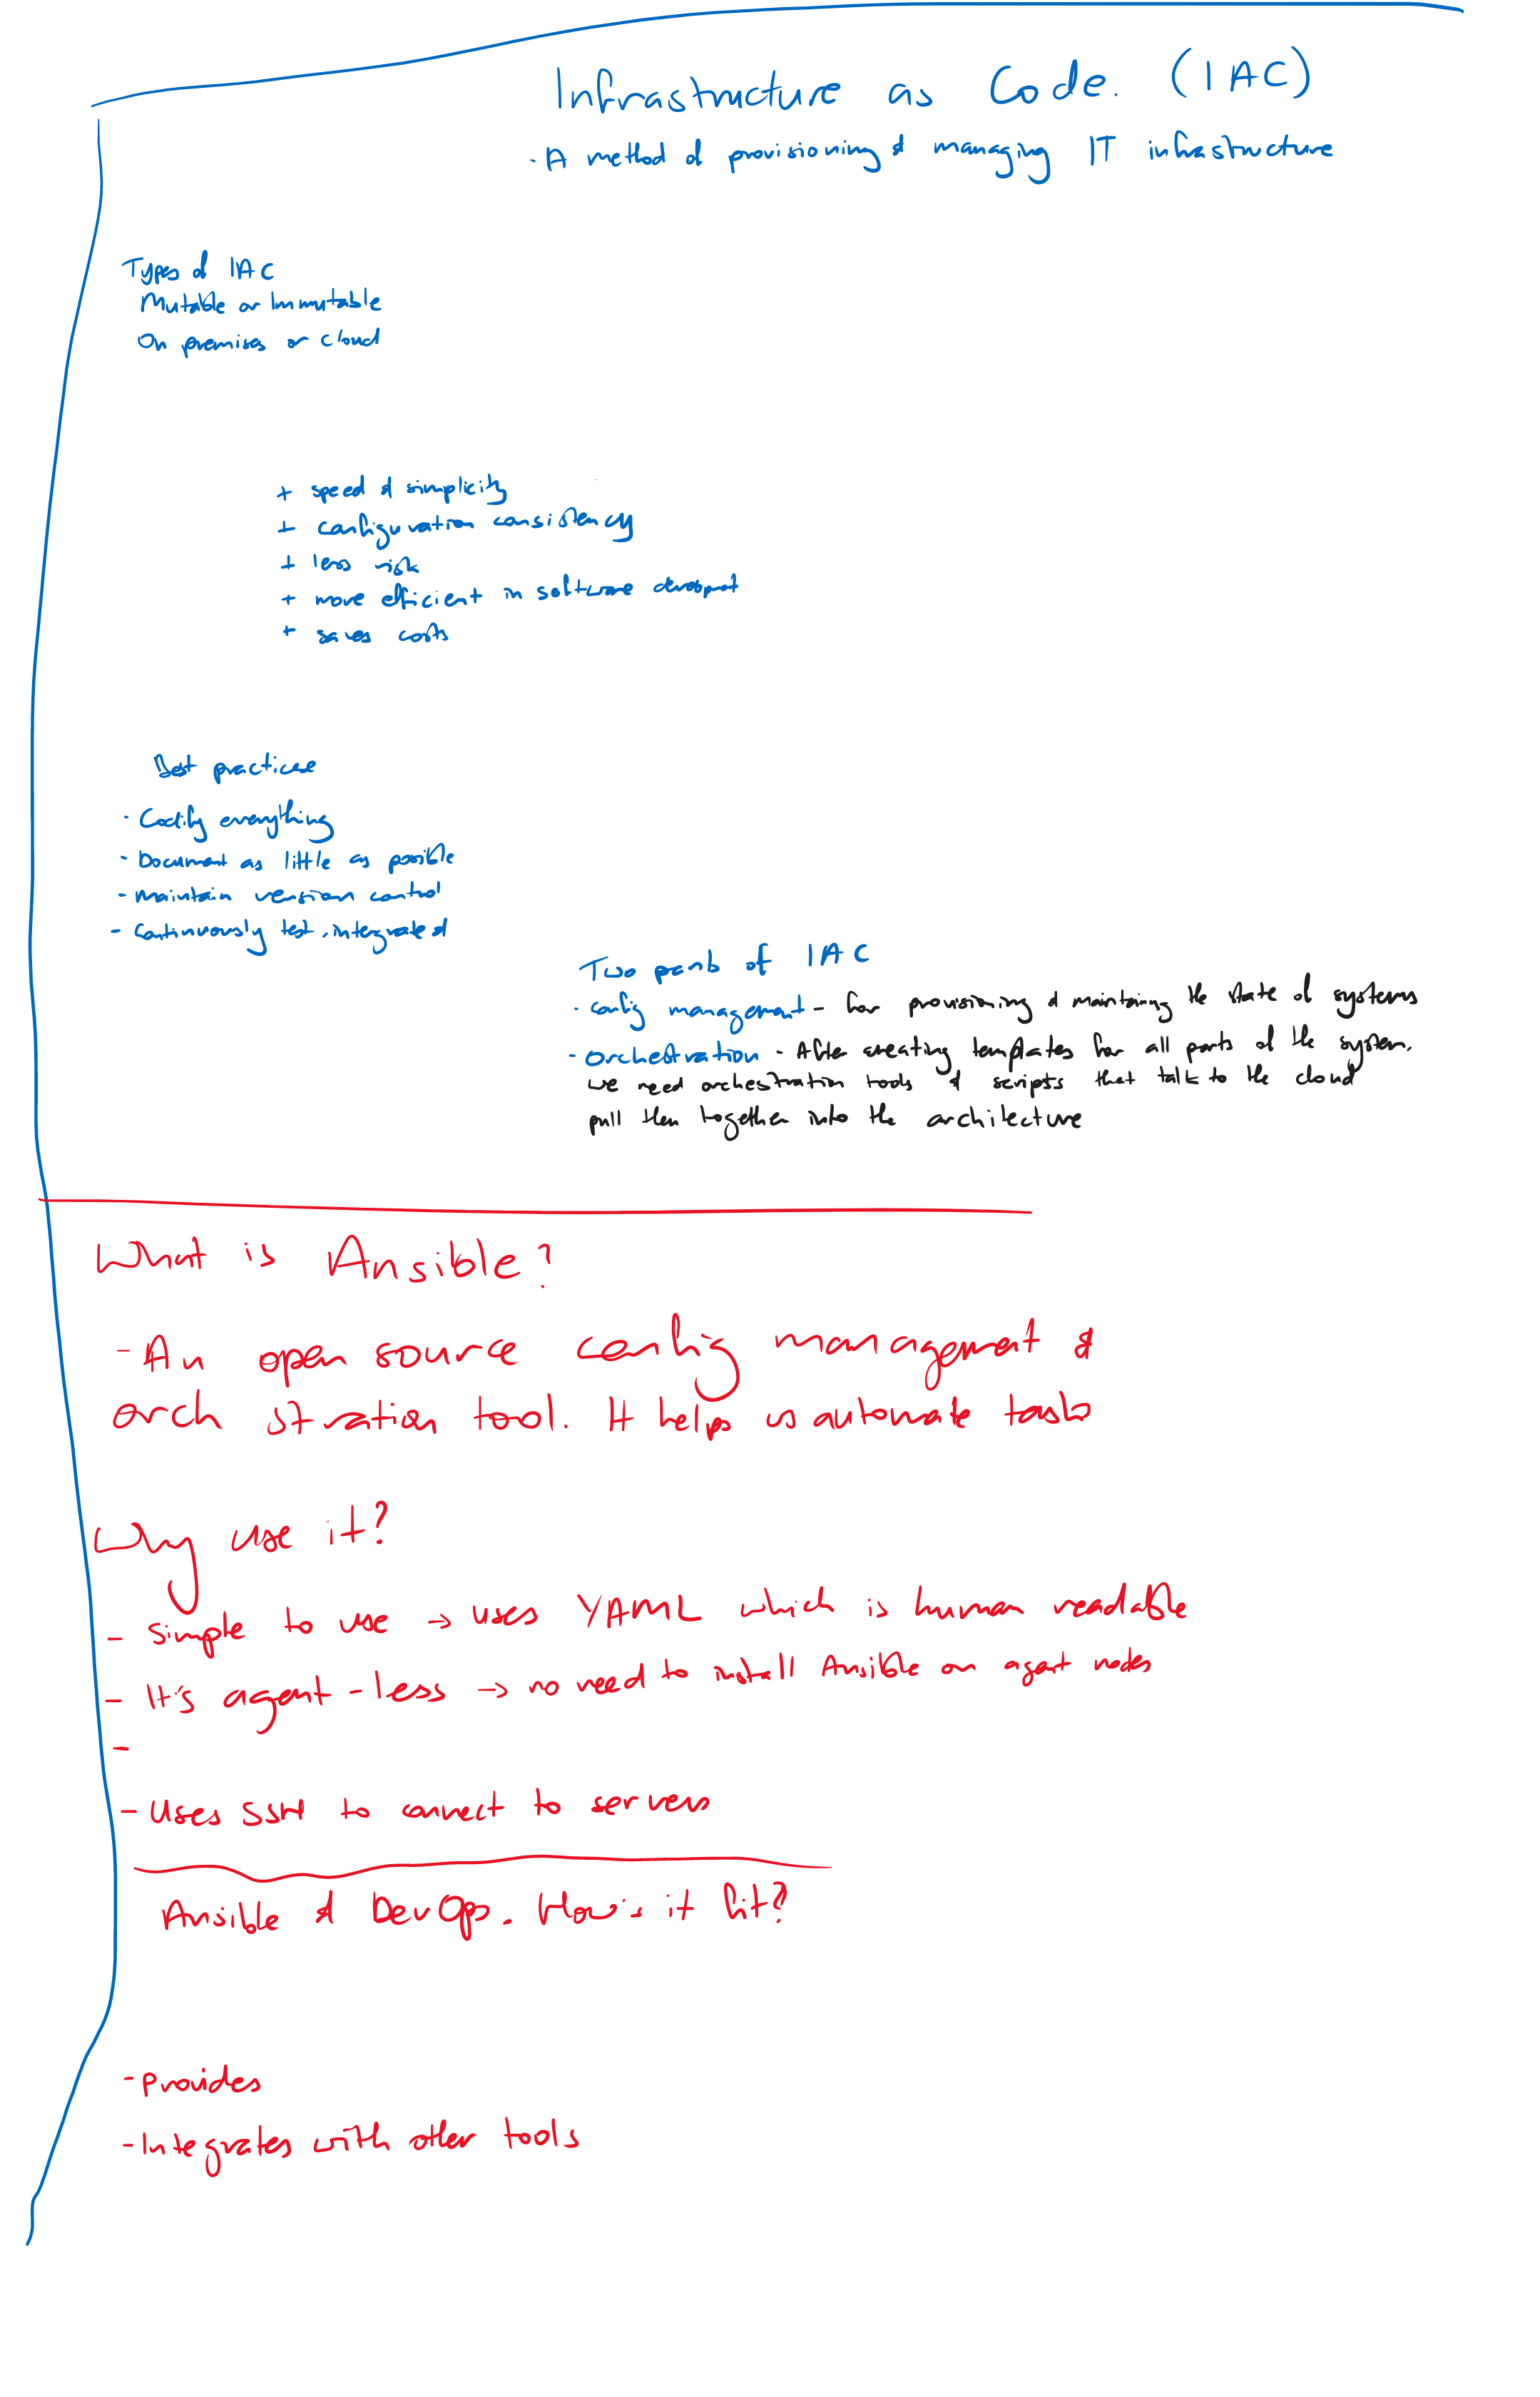 Infrastructure as Code. (IAC)
- A method of provisioning & managing IT infrastructure
Types of IAC
Mutable or Immutable
On premises or cloud
+ speed & simplicity
+ configuration consistency
+ less risk
+ more efficient in software
+ saves costs
Best practices
- Codify everything
- Document as little as possible
- Maintain version control
- Continuously test, intergrate &
Two parts of IAC
- Config management - For provisioning & maintaing the state of systems
- Orchestration - After creating templates for all parts of the system.
we need orchestration tools & scripts that talk to the cloud
pull then together into the architecture
What is Ansible?
- An open source config management &
orch stration tool. It helps us automate tasks
Why use it?
- Simple to use → uses YAML which is human readable
- It's agent-less → no need to install Ansible on agent nodes
-
- Uses SSH to connect to servers
Ansible & DevOps. How's it fit?
- Provides
- Integrates with other tools